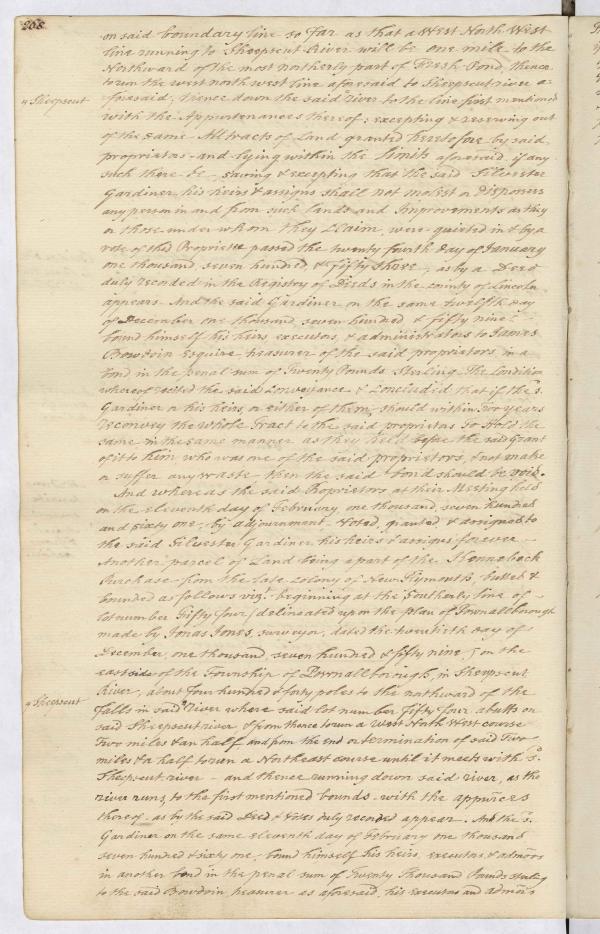 268.
on said boundary line so far as that a West North West
line running to Sheepscut River will be one mile to the
Northward of the most northerly part of Fresh Pond, thence
to run the west north west line aforesaid to Sheepscut river a-
"Sheepscut
foresaid; thence down the said river to the line first mentioned
with the Appurtenances thereof, excepting & reserving out
of the same All tracts of Land granted heretofore by said
proprietors and lying within the limits aforesaid, if any
such there be, saving & excepting that the said Silvester
Gardiner his heirs & assigns shall not molest or Dispossess
any person in and from such lands and Improvements as they
or those under whom they Claim, were quieted in by a
vote of the Proprietors passed the twenty fourth day of January
one thousand, seven hundred & fifty three, as by a Deed
duly recorded in the Registry of Deeds in the county of Lincoln
appears. And the said Gardiner on the same twelfth day
of December one thousand, seven hundred & fifty nine
bound himself his heirs executors, & administrators to James
Bowdoin Esquire treasurer of the said proprietors in a
bond in the penal sum of Twenty Pounds Sterling. The Condition
whereof recited the said Conveyance & Concluded that if the sd.
Gardiner or his heirs, or either of them, should within Two years
reconvey the whole Tract to the said proprietors to hold the
same in the same manner as they held before the said Grant
of it to him who was one of the said proprietors, & not make
or suffer any waste then the said bond should be void.
And whereas the said Proprietors at their Meeting held
on the eleventh day of February, one thousand, seven hundred
and sixty one, by adjournment Voted, granted & assigned to
the said Silvester Gardiner his heirs & assigns forever
Another parcel of Land being a part of the Kennebeck
Purchase from the late colony of New Plymouth, butted &
bounded as follows vizt. beginning at the Southerly line of
lot number Fifty four (delineated upon the plan of Pownallborough
made by Jonas Jones, surveyor, dated the twentieth day of
December, one thousand, seven hundred & fifty nine) on the
east side of the Township of Pownallborough, in Sheepscut
River, about Four hundred & forty poles to the northward of the
"Sheepscut
falls in said river where said lot number fifty four abutts on
said Sheepscut river & from thence to run a West North West course
Two miles & an half and from the end or termination of said Two
miles & a half to run a Northeast course until it meets with sd.
Sheepscut river and thence running down said river, as the
river runs, to the first mentioned bounds with the appurces
thereof as by the said Deed & Votes duly recorded appear. And the sd.
Gardiner on the same eleventh day of February one thousand
seven hundred & sixty one, bound himself his heirs, executors, & admors
in another bond in the penal sum of Twenty Thousand Pounds sterling
to the said Bowdoin, treasurer as aforesaid, his executors and admors